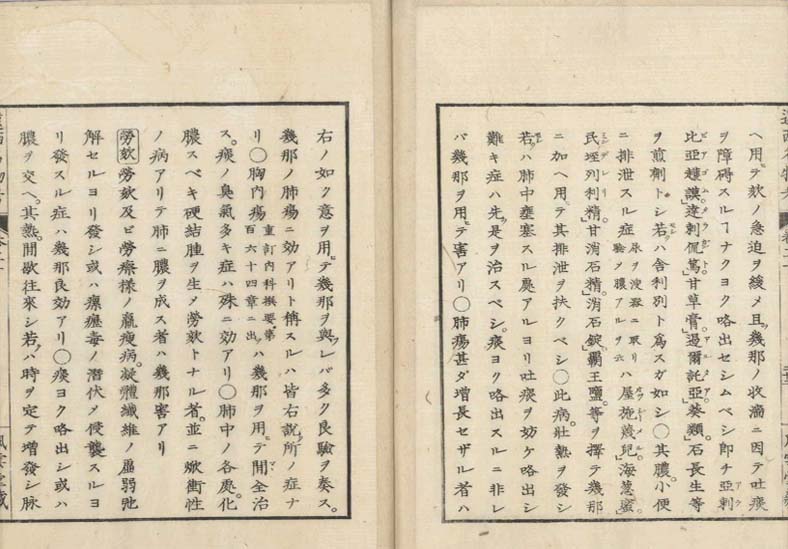 ヘ用テ欬ノ急迫ヲ緩メ且幾那ノ收濇ニ因テ吐痰
ヲ障碍スルヿナクヨク咯出セシムベシ即チ亞剌
比亞護謨。達剌侃篤。甘草膏。過爾託亞。葵類。石長生等
ヲ煎劑トシ若ハ舎利別ト爲スガ如シ〇其膿。小便
ニ排泄スル症尿ヲ溲器ニ取リ驗メ膿アルヲ云ハ屋施蔑兒。海葱蜜。
民垤列利精。甘消石精。消石錠。覇王鹽。等ヲ擇テ幾那
ニ加ヘ用テ其排泄ヲ扶クベシ〇此病。壯熱ヲ發シ
若ハ肺中壅塞スル處アルヨリ吐痰ヲ妨ケ咯出シ
難キ症ハ先是ヲ治スベシ。痰ヨク咯出スルニ非レ
バ幾那ヲ用テ害アリ〇肺瘍甚ダ増長セザル者ハ
右ノ如ク意ヲ用テ幾那ヲ與レバ多ク良驗ヲ奏ス。
幾那ノ肺瘍ニ効アリト稱スルハ皆右説所ノ症ナ
リ〇胸内瘍重訂内科撰要第百六十四章ニ出ハ幾那ヲ用テ間全治
ス。痰ノ臭氣多キ症ハ殊ニ効アリ〇肺中ノ各處化
膿スベキ硬結腫ヲ生メ勞欬トナル者。並ニ焮衝性
ノ病アリテ肺ニ膿ヲ成ス者ハ幾那害アリ
勞欬 勞欬及ビ勞瘵様ノ羸瘦病。凝體纖維ノ羸弱弛
解セルヨリ發シ或ハ瘰癧毒ノ潜伏メ侵襲スルヨ
リ發スル症ハ幾那良効アリ〇痰ヨク咯出シ或ハ
膿ヲ交ヘ。其熱。間歇往來シ若ハ時ヲ定テ増發シ脉